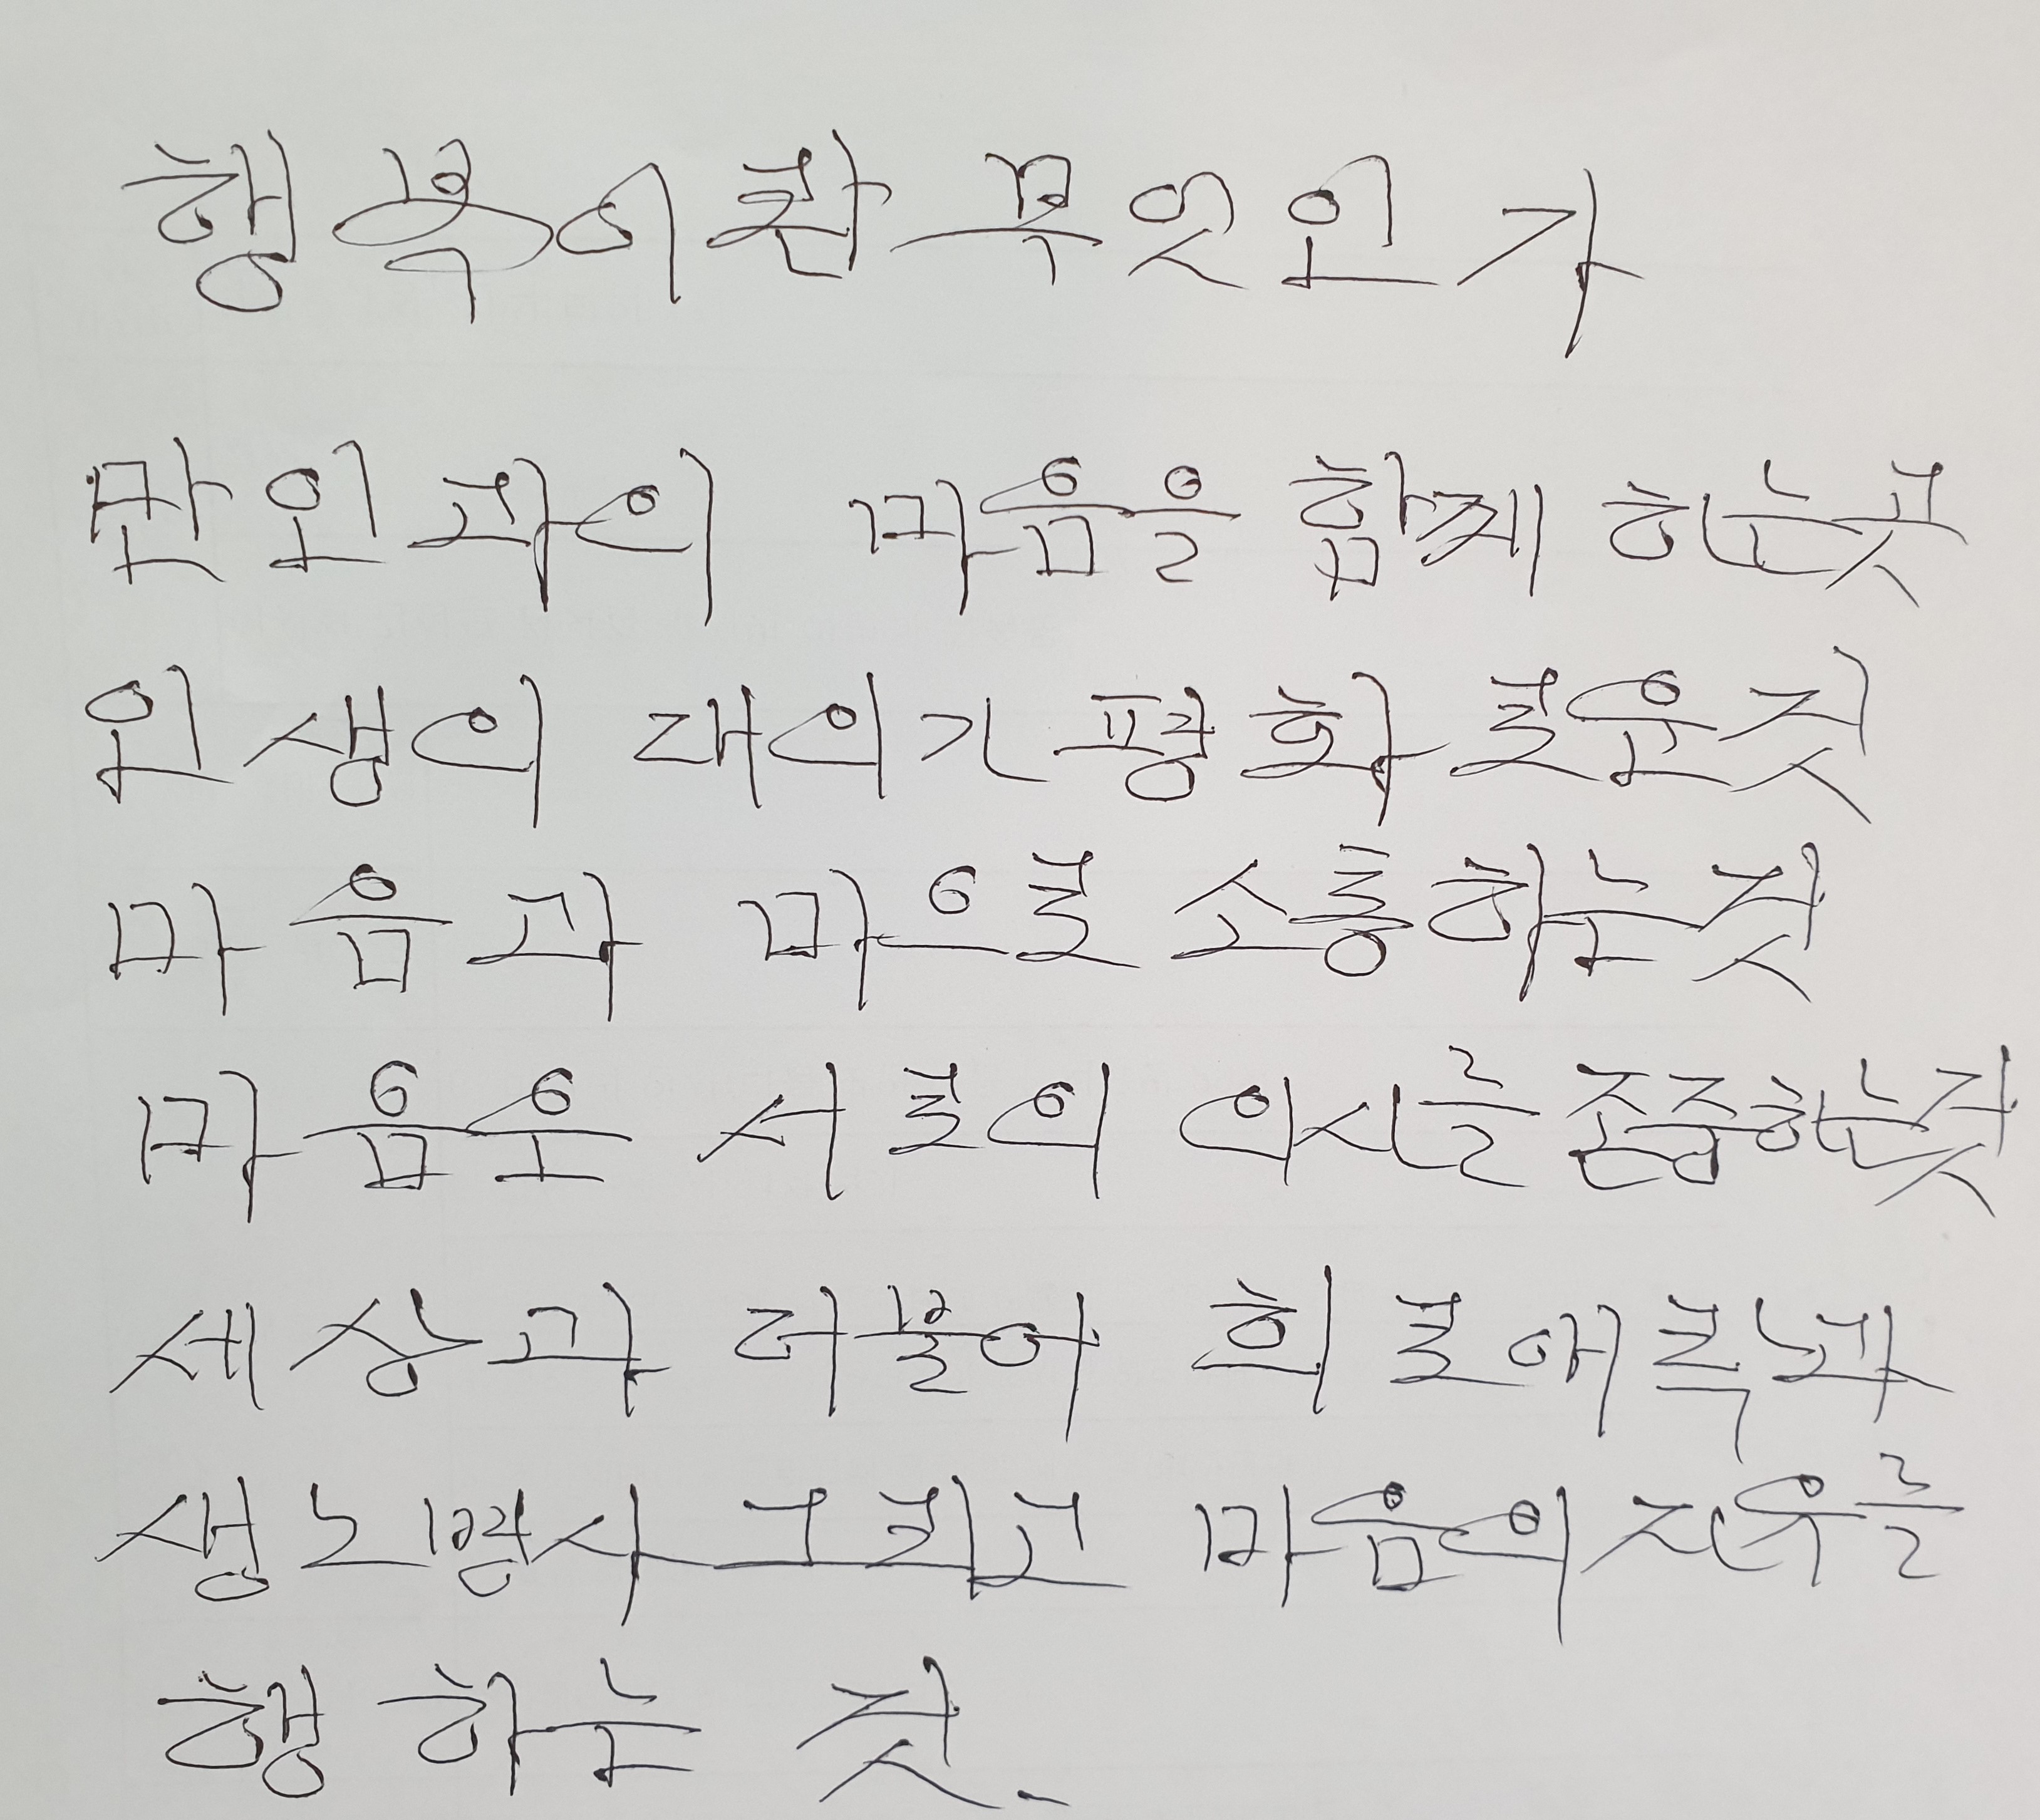 행복이란 무엇인가
만인과의 마음을 함께 하는곳
인생의 대의가 평화로운것
마음과 마으로 소통하는것
마음은 서로의 의사를 존중하는것
세상과 더불어 희로애락과
생노병사 그리고 마음의 자유를
행하는 것.